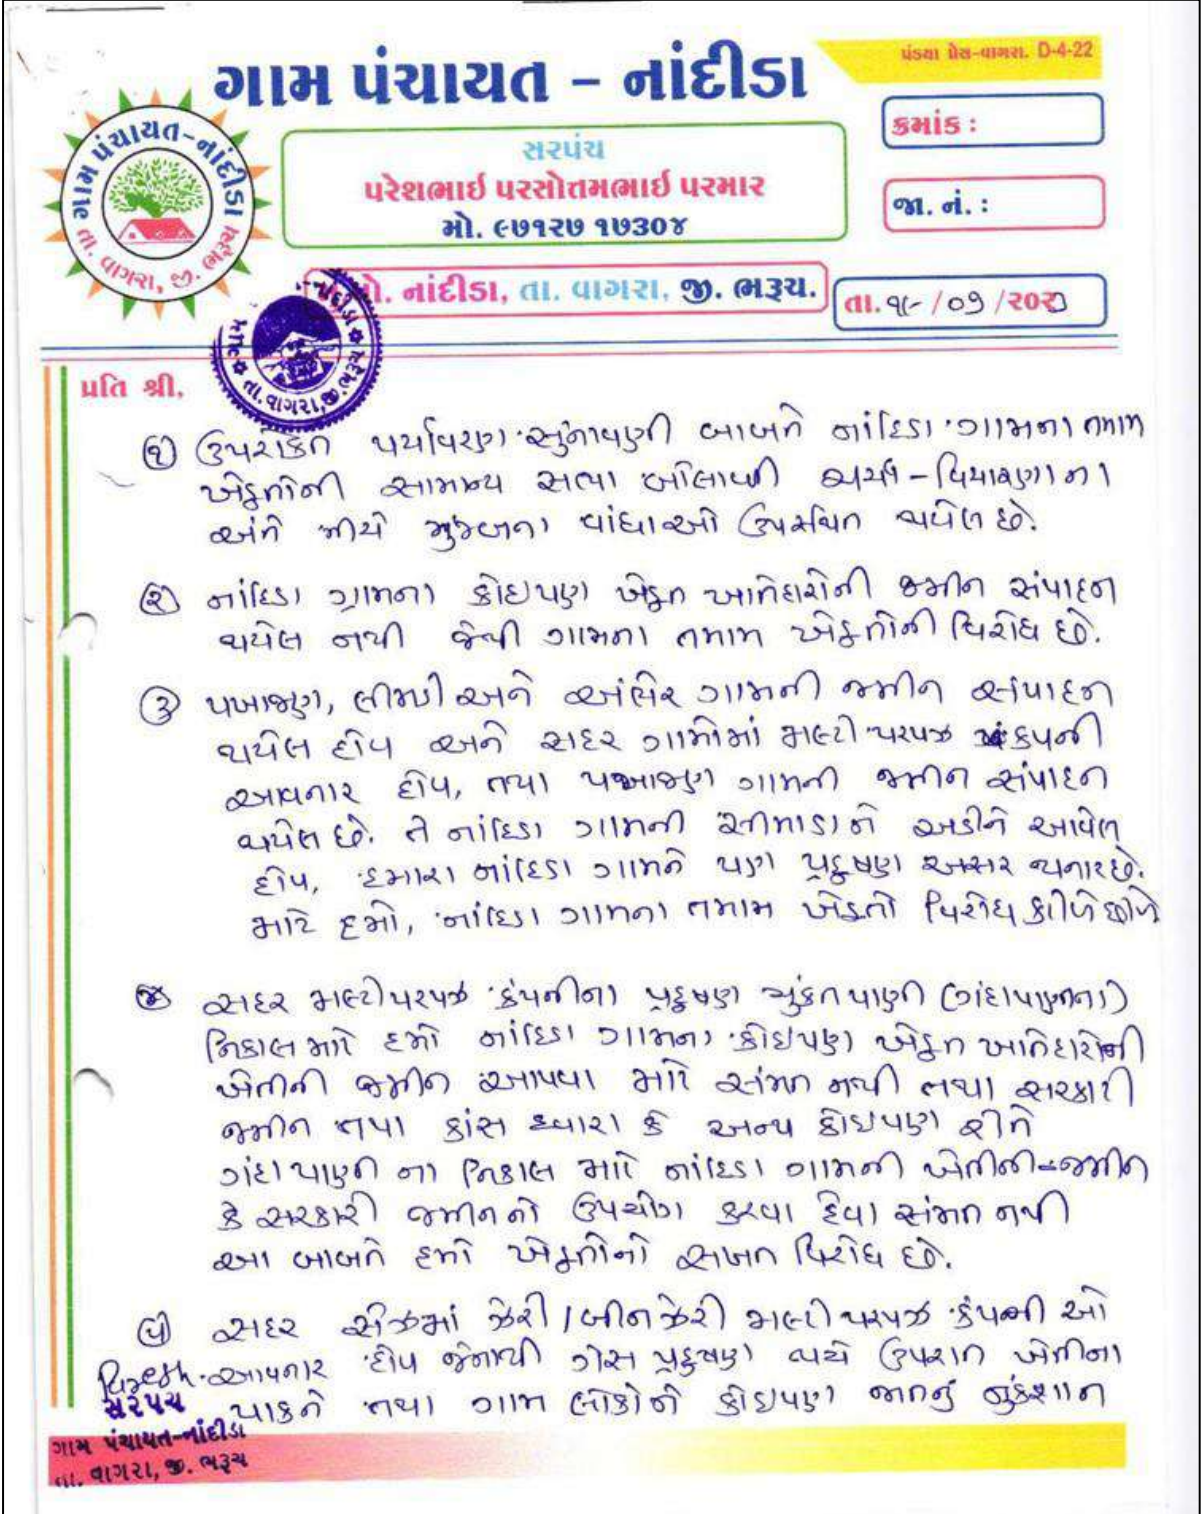 પંડયા પ્રેસ-વાગરા. D-4-22
ગામ પંચાયત - નાંદીડા
ક્રમાંક :
સરપંચ
પરેશભાઈ પરસોતમભાઈ પરમાર
મો. ૯૭૧૨૭ ૧૭૩૦૪
જા. નં. :
ગામ પંચાયત-નાંદીડા
તા. વાગરા, જી. ભરૂચ
મો. નાંદીડા, તા. વાગરા, જી. ભરૂચ.
તા. /૦૭ /૨૦૨૩
નાંદીડા
તા.વાગરા,જી.ભરૂચ
પ્રતિ શ્રી,
૧) ઉપરોકત પર્યાવરણ સુનાવણી બાબતે નાંદિડા ગામના તમામ
ખેડુતોની સામન્ય સભા બોલાવી ચર્ચા - વિચારણાના
અંતે નીચે મુજબના વાંધાઓ ઉપસ્થિત થયેલ છે.
૨) નાંદિડા ગામના કોઇપણ ખેડુત ખાતેદારોની જમીન સંપાદન
થયેલ નથી જેથી ગામના તમામ ખેડુતોની વિરોધ છે.
૩ પખાજણ, લીમડી અને અંભેર ગામની જમીન સંપાદન
થયેલ હોય અને સદર ગામોમાં મલ્ટી પરપઝ કંપની
આવનાર હોય, તથા પખાજણ ગામની જમીન સંપાદન
થયેલ છે. તે નાંદિડા ગામની સીમાડાને અડીને આવેલ
હોય, હમારા નાંદિડા ગામને પણ પ્રદુષણ અસર થનાર છે.
માટે હમો, નાંદિડા ગામના તમામ ખેડુતો વિરોધ કરીએ છીએ
૪ સદર મલ્ટીપરપઝ કંપનીના પ્રદુષણ યુકત પાણી (ગંદાપાણીના)
નિકાલ માટે હમો નાંદિડા ગામના કોઇપણ ખેડુત ખાતેદારોની
ખેતીની જમીન આપવા માટે સંમત નથી તથા સરકારી
જમીન તથા કાંસ ધ્વારા કે અન્ય કોઇપણ રીતે
ગંદા પાણી ના નિકાલ માટે નાંદિડા ગામની ખેતીની જમીન
કે સરકારી જમીનનો ઉપયોગ કરવા દેવા સંમત નથી
આ બાબતે હમો ખેડુતોનો સખત વિરોધ છે.
૫) સદર સેઝમાં ઝેરી / બીનઝેરી મલ્ટી પરપઝ કંપની ઓ
આવનાર હોય જેનાથી ગેસ પ્રદુષણ થશે ઉપરાત ખેતીના
પાકને તથા ગામ લોકોને કોઇપણ જાતનું નુકશાન
સરપંચ
ગામ પંચાયત-નાંદીડા
તા. વાગરા, જી. ભરૂચ